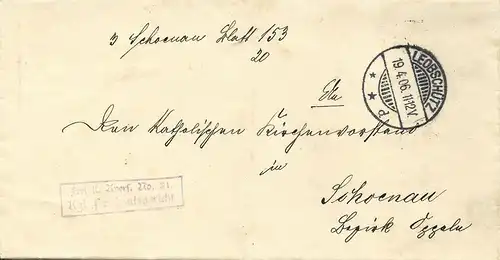 3 Schoenau Blatt 153
20
LEOBSCHÜTZ
19.4.06. 11-12V.
* * P
An
Den Katholischen Kirchenvorstand
in
Frei lt. Avers. No. 21.
Kgl. Pr. Amtsgericht
Schoenau
Bezirk Oppeln